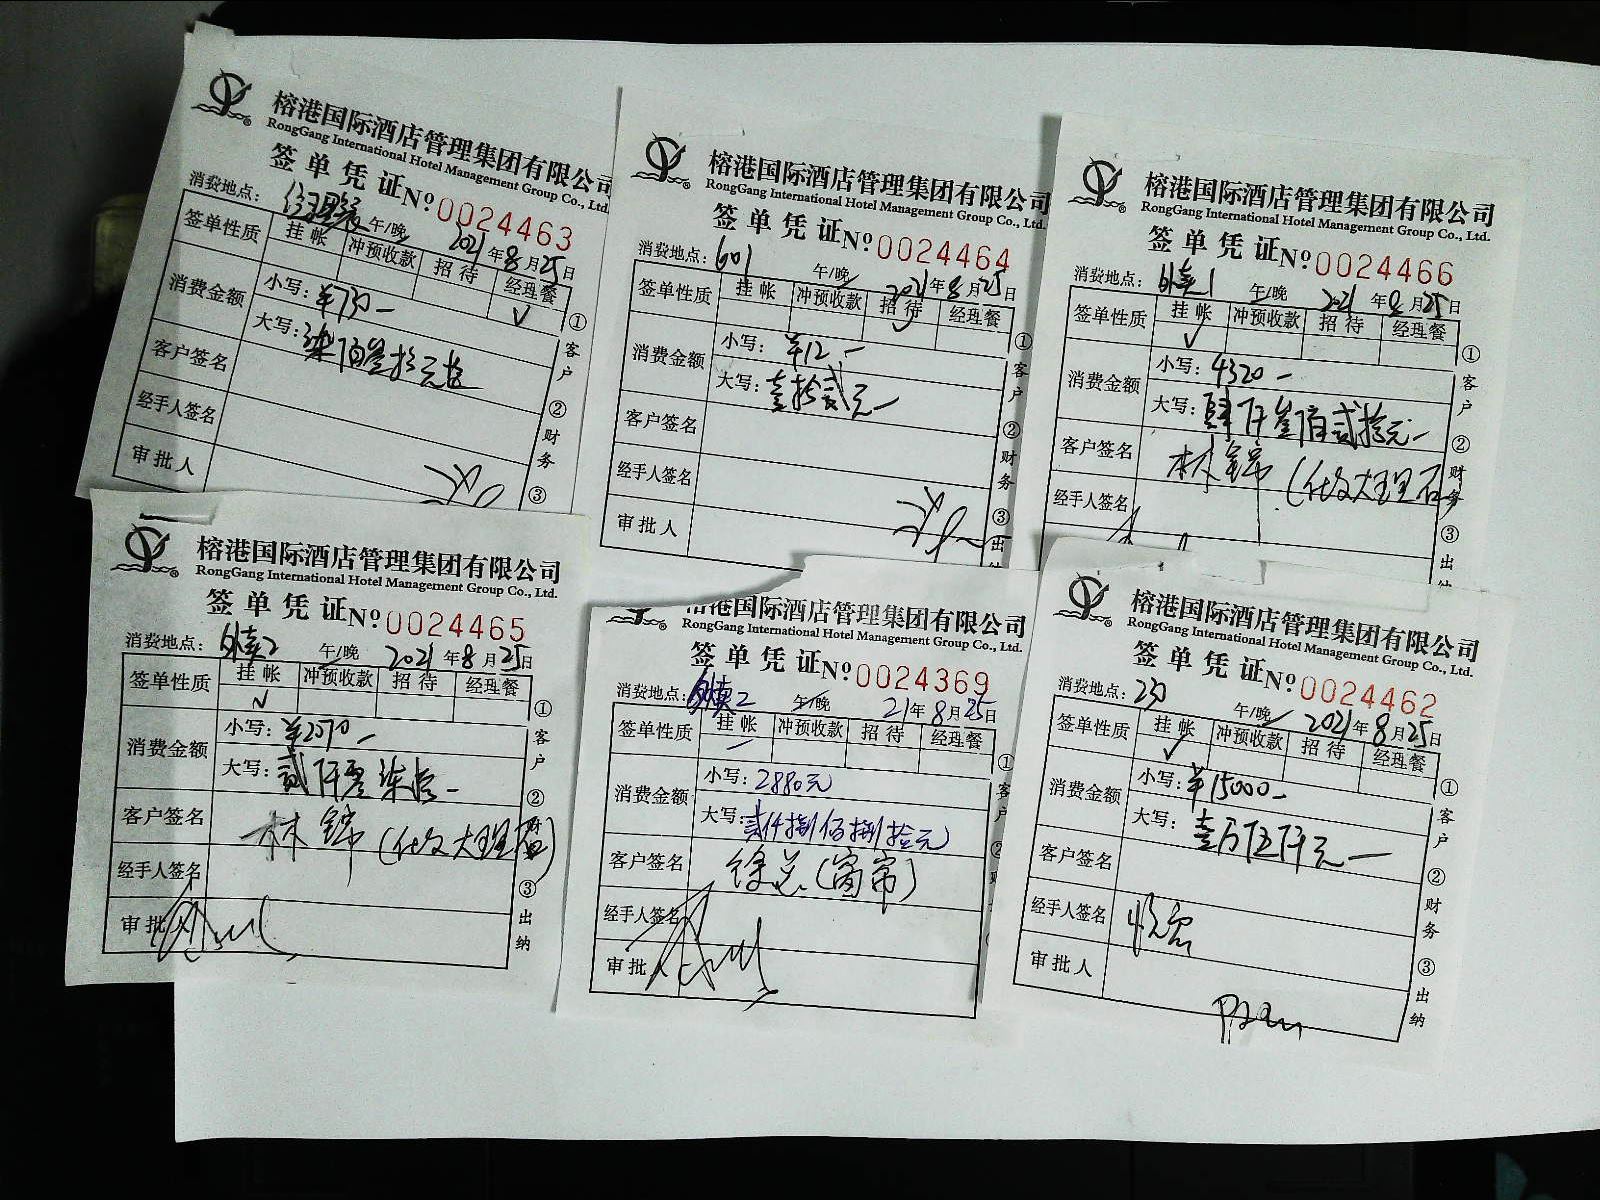 榕港国际酒店管理集团有限公司
RongGang International Hotel Management Group Co., Ltd.
签单凭证 №0024463
消费地点: 经理餐 午/晚 2021年8月25日
签单性质 挂帐 冲预收款 招待 经理餐
✓
消费金额 小写: ¥730-
大写: 柒佰叁拾元
客户签名
经手人签名
审批人
①客户 ②财务 ③
榕港国际酒店管理集团有限公司
RongGang International Hotel Management Group Co., Ltd.
签单凭证 №0024464
消费地点: 601 午/晚 2021年8月25日
签单性质 挂帐 冲预收款 招待 经理餐
✓
消费金额 小写: ¥12-
大写: 壹拾贰元-
客户签名
经手人签名
审批人
①客户 ②财务 ③出
榕港国际酒店管理集团有限公司
RongGang International Hotel Management Group Co., Ltd.
签单凭证 №0024466
消费地点: 外卖1 午/晚 2021年8月25日
签单性质 挂帐 冲预收款 招待 经理餐
✓
消费金额 小写: 4320-
大写: 肆仟叁佰贰拾元-
客户签名 林锦(仕文大理石
经手人签名
①客户 ②财务 ③出纳
榕港国际酒店管理集团有限公司
RongGang International Hotel Management Group Co., Ltd.
签单凭证 №0024465
消费地点: 外卖2 午/晚 2021年8月25日
签单性质 挂帐 冲预收款 招待 经理餐
✓
消费金额 小写: ¥2070-
大写: 贰仟零柒拾-
客户签名 林锦(仕文大理石)
经手人签名
审批人
①客户 ②财务 ③出纳
榕港国际酒店管理集团有限公司
RongGang International Hotel Management Group Co., Ltd.
签单凭证 №0024369
消费地点: 外卖2 午/晚 21年8月25日
签单性质 挂帐 冲预收款 招待 经理餐
消费金额 小写: 2880元
大写: 贰仟捌佰捌拾元
客户签名 徐总(窗帘)
经手人签名
审批人
①客户 ② 财
榕港国际酒店管理集团有限公司
RongGang International Hotel Management Group Co., Ltd.
签单凭证 №0024462
消费地点: 午/晚 2021年8月25日
签单性质 挂帐 冲预收款 招待 经理餐
✓
消费金额 小写: ¥15000-
大写: 壹万伍仟元-
客户签名
经手人签名
审批人
①客户 ②财务 ③出纳